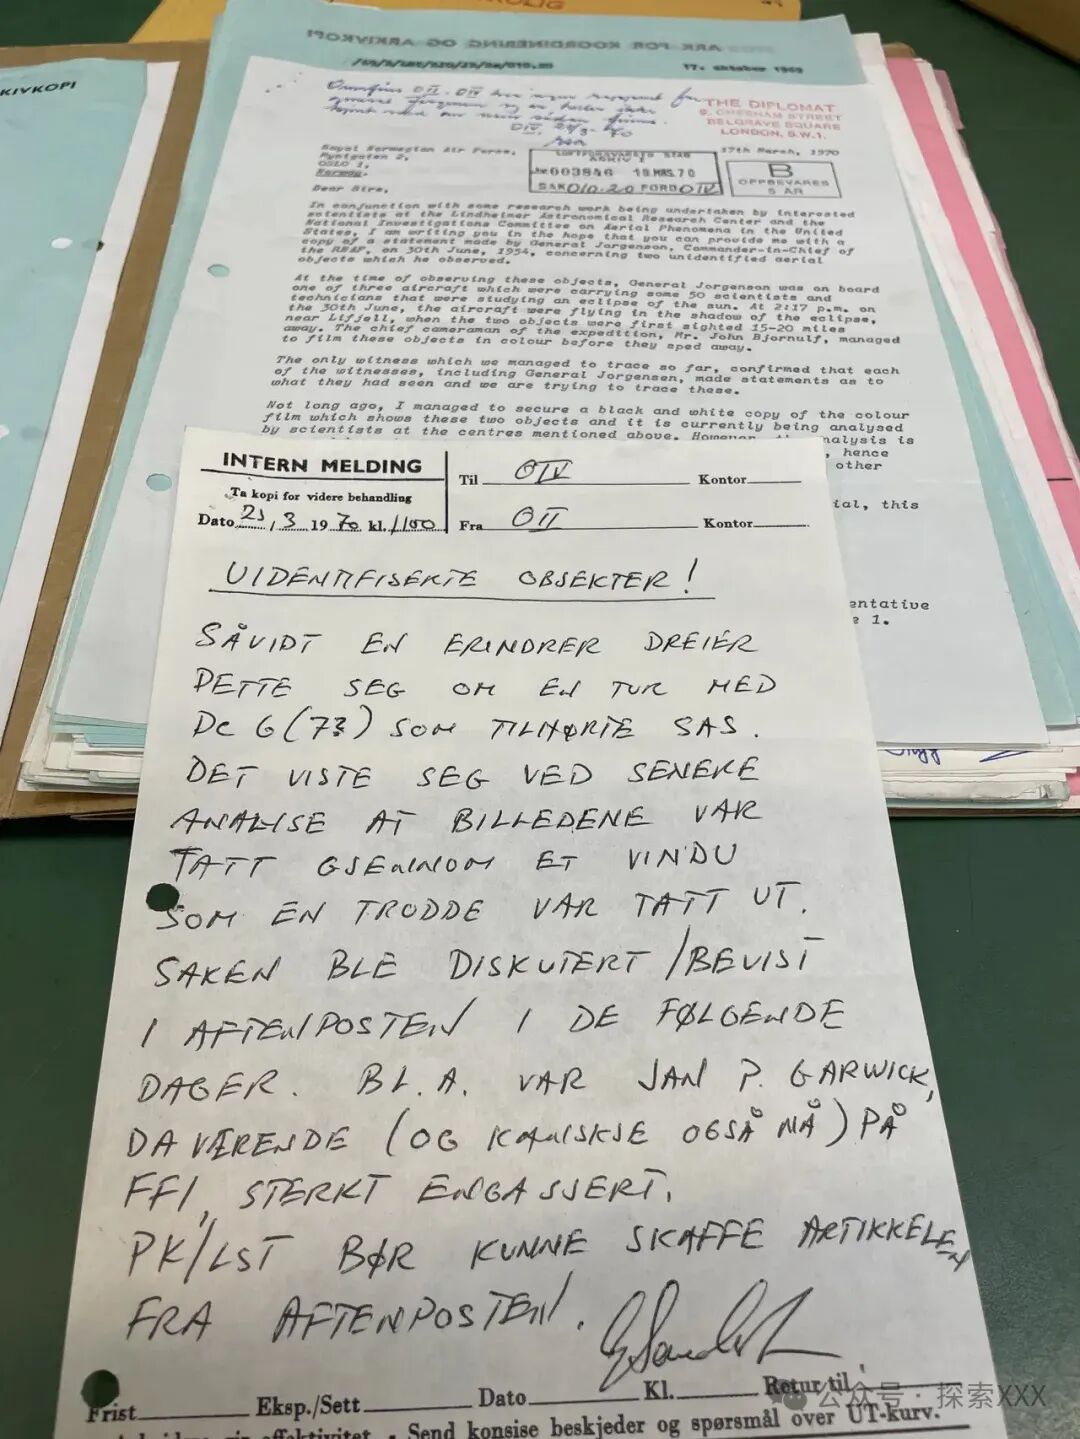 KIVKOPI
ARK FOR KOORDINERING OG ARKIVKOPI
17. oktober 1969
THE DIPLOMAT
9, CHESHAM STREET
BELGRAVE SQUARE
LONDON, S.W.1.
17th March, 1970
Royal Norwegian Air Force,
Myntgaten 2,
OSLO 1,
Norway.
LUFTFORSVARETS STAB
ARKIV I
Jnr 003846 19.MRS.70
SAK 010.20 FORD OIV
B
OPPBEVARES
5 ÅR
Dear Sirs,
In conjunction with some research work being undertaken by interested
scientists at the Lindheimer Astronomical Research Center and the
National Investigations Committee on Aerial Phenomena in the United
States, I am writing you in the hope that you can provide me with a
copy of a statement made by General Jorgenson, Commander-in-Chief of
the RNAF, on 30th June, 1954, concerning two unidentified aerial
objects which he observed.
At the time of observing these objects, General Jorgenson was on board
one of three aircraft which were carrying some 50 scientists and
technicians that were studying an eclipse of the sun. At 2:17 p.m. on
the 30th June, the aircraft were flying in the shadow of the eclipse,
near Lifjell, when the two objects were first sighted 15-20 miles
away. The chief cameraman of the expedition, Mr. John Bjornulf, managed
to film these objects in colour before they sped away.
The only witness which we managed to trace so far, confirmed that each
of the witnesses, including General Jorgensen, made statements as to
what they had seen and we are trying to trace these.
Not long ago, I managed to secure a black and white copy of the colour
film which shows these two objects and it is currently being analysed
by scientists at the centres mentioned above. However, the analysis is
, hence
other
ial, this
entative
e 1.
INTERN MELDING
Ta kopi for videre behandling
Dato 23, 3 1970 kl. 1100
Til OIV Kontor
Fra OII Kontor
UIDENTIFISERTE OBJEKTER!
SÅVIDT EN ERINDRER DREIER
DETTE SEG OM EN TUR MED
DC 6 (7?) SOM TILHØRTE SAS.
DET VISTE SEG VED SENERE
ANALISE AT BILLEDENE VAR
TATT GJENNOM ET VINDU
SOM EN TRODDE VAR TATT UT.
SAKEN BLE DISKUTERT/BEVIST
I AFTENPOSTEN I DE FØLGENDE
DAGER. BL.A. VAR JAN P. GARWICK,
DAVÆRENDE (OG KANSKJE OGSÅ NÅ) PÅ
FFI, STERKT ENGASJERT.
PK/LST BØR KUNNE SKAFFE ARTIKKELEN
FRA AFTENPOSTEN.
Frist Eksp./Sett Dato Kl. Retur til
effektivitet. - Send konsise beskjeder og spørsmål over UT-kurv.
公众号·探索XXX